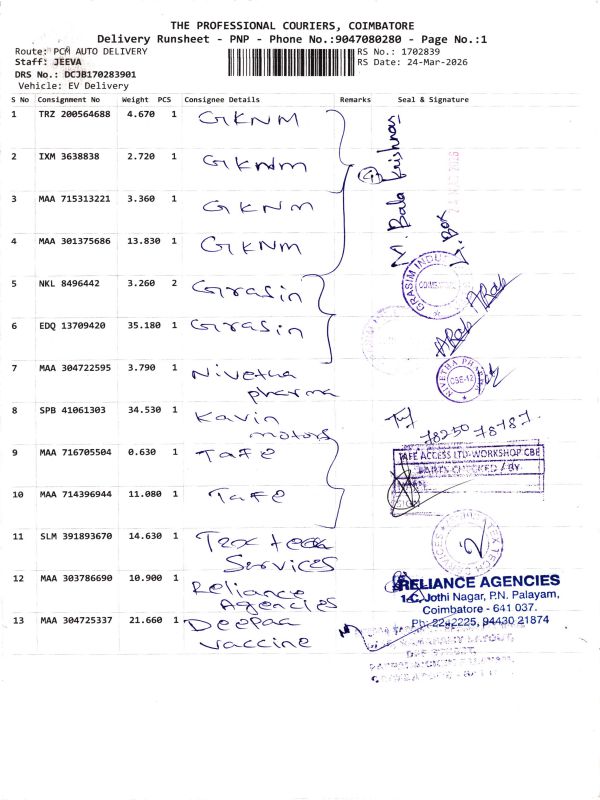 THE PROFESSIONAL COURIERS, COIMBATORE
Delivery Runsheet - PNP - Phone No.:9047080280 - Page No.:1
Route: PCM AUTO DELIVERY
RS No.: 1702839
Staff: JEEVA
RS Date: 24-Mar-2026
DRS No.: DCJB170283901
Vehicle: EV Delivery
S No Consignment No Weight PCS Consignee Details Remarks Seal & Signature
1 TRZ 200564688 4.670 1 GKNM
2 IXM 3638838 2.720 1 GKNM
3 MAA 715313221 3.360 1 GKNM
4 MAA 301375686 13.830 1 GKNM
(4)
M. Bala Krishnan
5 NKL 8496442 3.260 2 Grasin
GRASIM INDU
6 EDQ 13709420 35.180 1 Grasin
7 MAA 304722595 3.790 1 Nivetha
pharma
NIVETHA PHARMA
CBE-12
8 SPB 41061303 34.530 1 Kavin
motors
78250 78787.
9 MAA 716705504 0.630 1 TAFE
TAFE ACCESS LTD-WORKSHOP CBE
PARTS CHECKED / BY
10 MAA 714396944 11.080 1 TAFE
11 SLM 391893670 14.630 1 Tex tech
Services
12 MAA 303786690 10.900 1 Reliance
Agencies
RELIANCE AGENCIES
1-C, Jothi Nagar, P.N. Palayam,
Coimbatore - 641 037.
Ph: 2242225, 94430 21874
13 MAA 304725337 21.660 1 Deepaa
vaccine